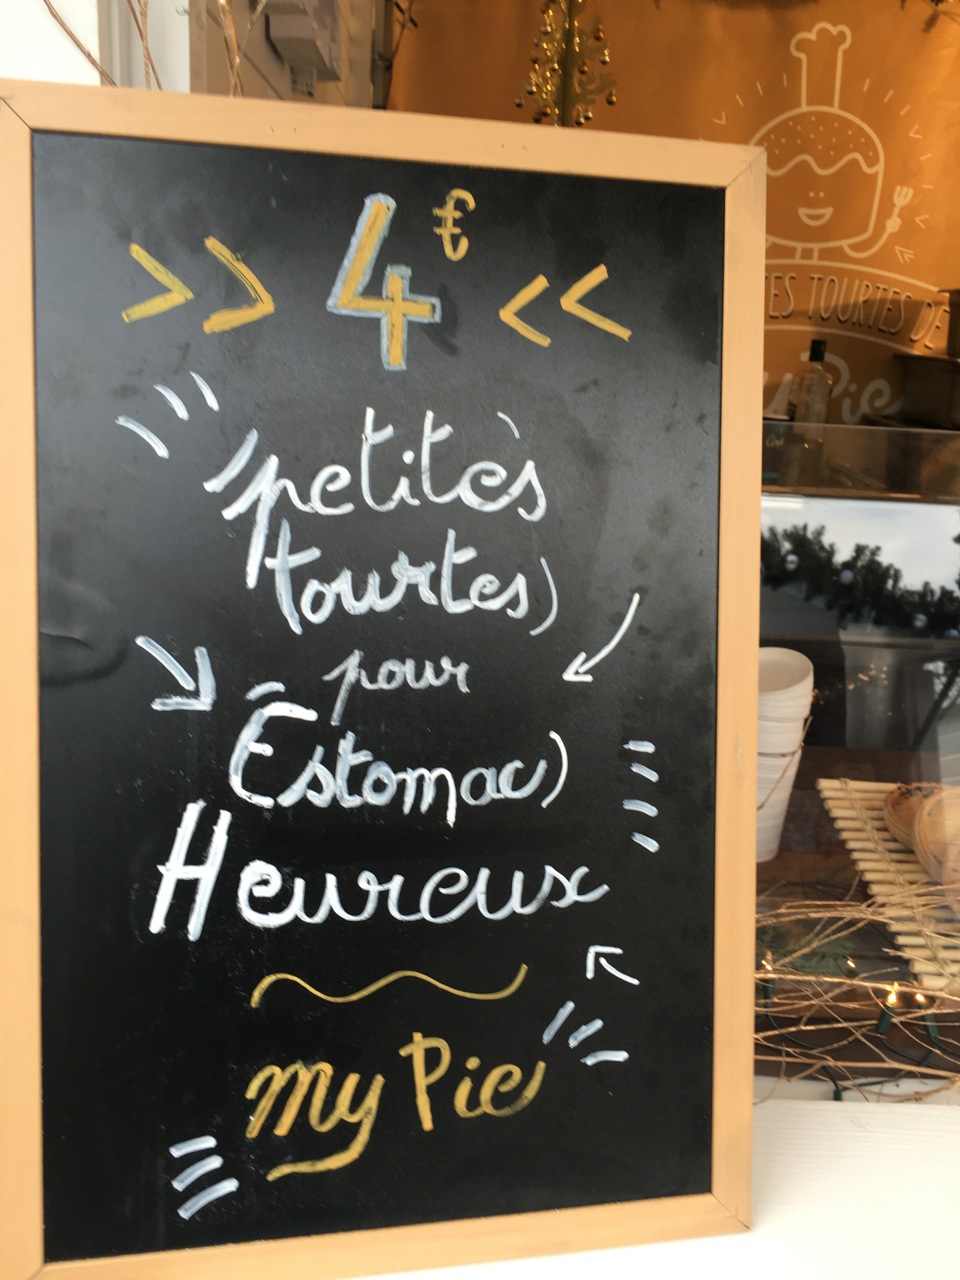 >> 4€ <<
petites
tourtes
pour
Estomac
Heureux
my Pie
TES TOURTES DE
y Pie